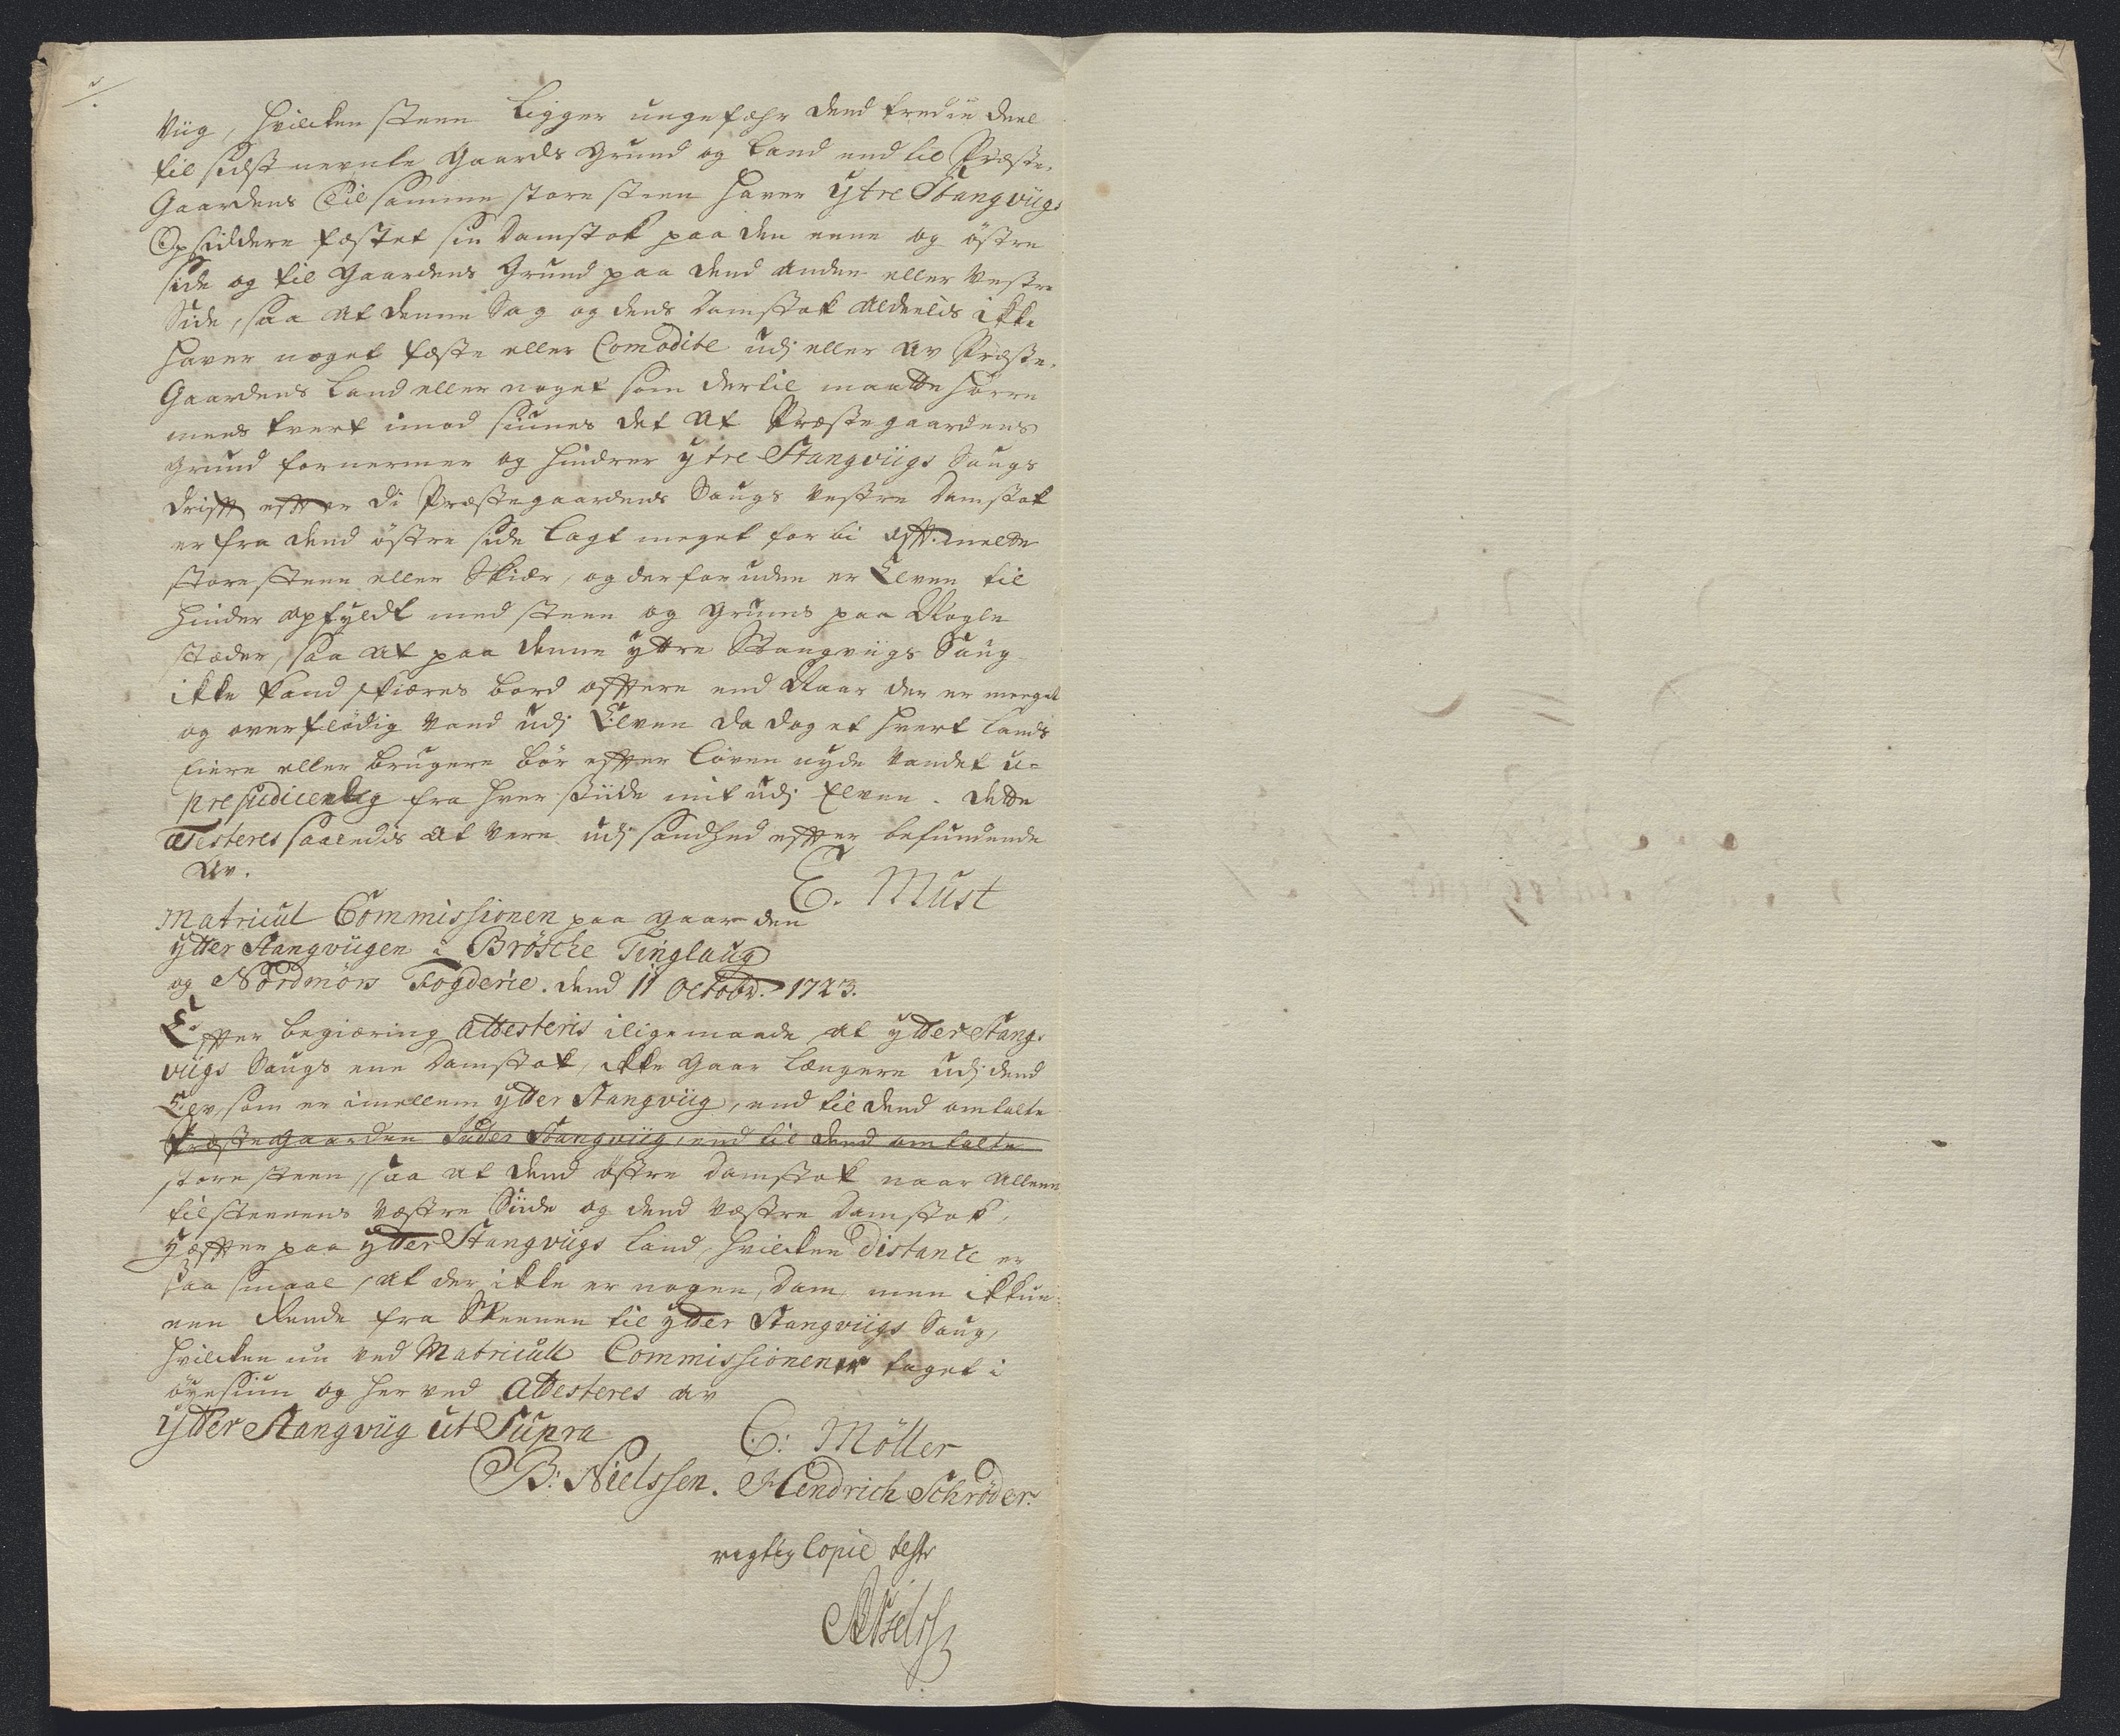 Viig, hvilcken steen ligger ungefehr dend tredie deel
til sidstnevnte Gaards grund og land end til Præste-
Gaardens Til samme store steen haver ytre Stangviigs
Opsiddere fæstet sin Damstok paa den eene og östre
side og til Gaardens Grund paa dend anden eller Vestre
Side, saa at denne Sag og dens Damstok aldeelis ikke
haver noget fæste eller Comodite udj eller av Præste-
Gaardens land eller noget som dertil maatte höre
mens tvert imod siunes det at Præstegaardens
grund fornermer og hindrer ytre Stangviigs Saugs
drifft effter di Præstegaardens Saugs Vestre Damstok
er fra dend östre side lagt meget forbi offt.melte
store steen eller Skier, og der foruden er Elven til
hinder opfyldt med steen og gruus paa Nogle
stæder, saa at paa denne yttre Stangviigs Saug
ikke kand skiæres bord offtere end Naar der er meeget
og overflödig Vand udj Elven da dog et hvert lands
Eiere eller brugere bör effter loven nyde Vandet u-
prejudicerlig fra hver siide mit udj Elven. Dette
atesteres saaledis at Vere udj sandhed effter befundende
av.
E. Must
Matricul Commissionen paa gaarden
ytter Stangviigen i Brösche Tinglaug
og Nordmörs Fogderie. dend 11 Octobr. 1723.
Effter begiæring attesteris iligemaade at ytter Stang-
viigs Saugs ene Damstok, ikke gaar længere udj dend
Elv som er imellem ytter Stangviig, end til dend omtalte
Præstegaarden Inder Stangviig, end til dend omtalte
store steen, saa at dend östre damstok naar alleene
til steenens Væstre Siide og dend Væstre Damstok,
hæffter paa ytter Stangviigs land, hvilcken distance er
saa smaal, at der ikke er nogen Dam men ikkun
een Rende fra Steenen til ytter Stangviigs Saug,
hvilcken nu ved Matricull Commissionen er taget i
öyesiun og her ved attesteres av
ytter Stangviig ut Supra
C: Möller
B: Nielssen. Hendrich Schröder.
rigtig Copie test